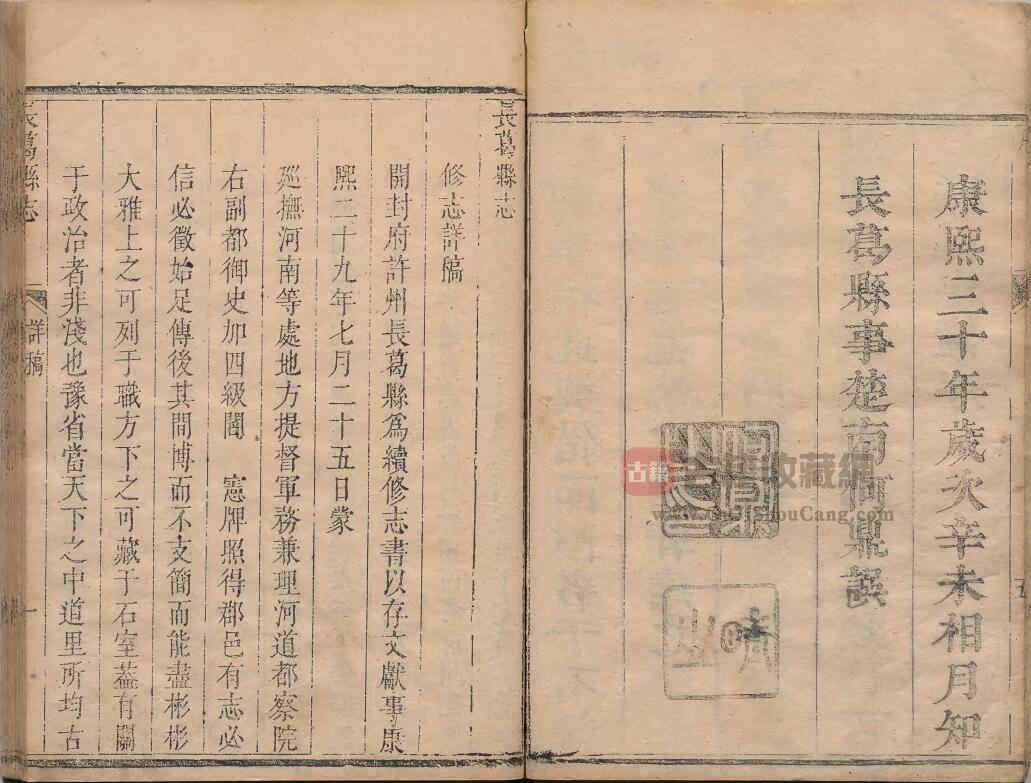 康熙三十年歲次辛未相月知
長葛縣事楚南何鼎譔
長葛縣志
修志詳稿
開封府許州長葛縣為續修志書以存文獻事康
熙二十九年七月二十五日蒙
廵撫河南等處地方提督軍務兼理河道都察院
右副都御史加四級閻 憲牌照得郡邑有志必
信必徵始足傳後其間博而不支簡而能盡彬彬
大雅上之可列于職方下之可藏于石室葢有關
于政治者非淺也豫省當天下之中道里所均古
長葛縣志
詳稿
一
古籍
收藏網